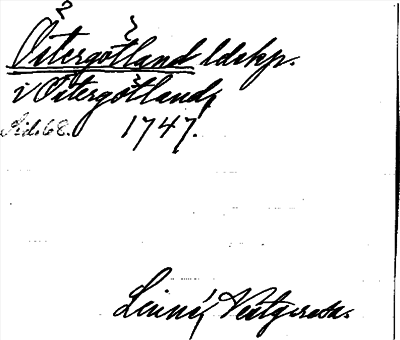 Östergötland ldskp.
i Östergötland,
Sid. 68. 1747.
Linné, Vestg.resa.